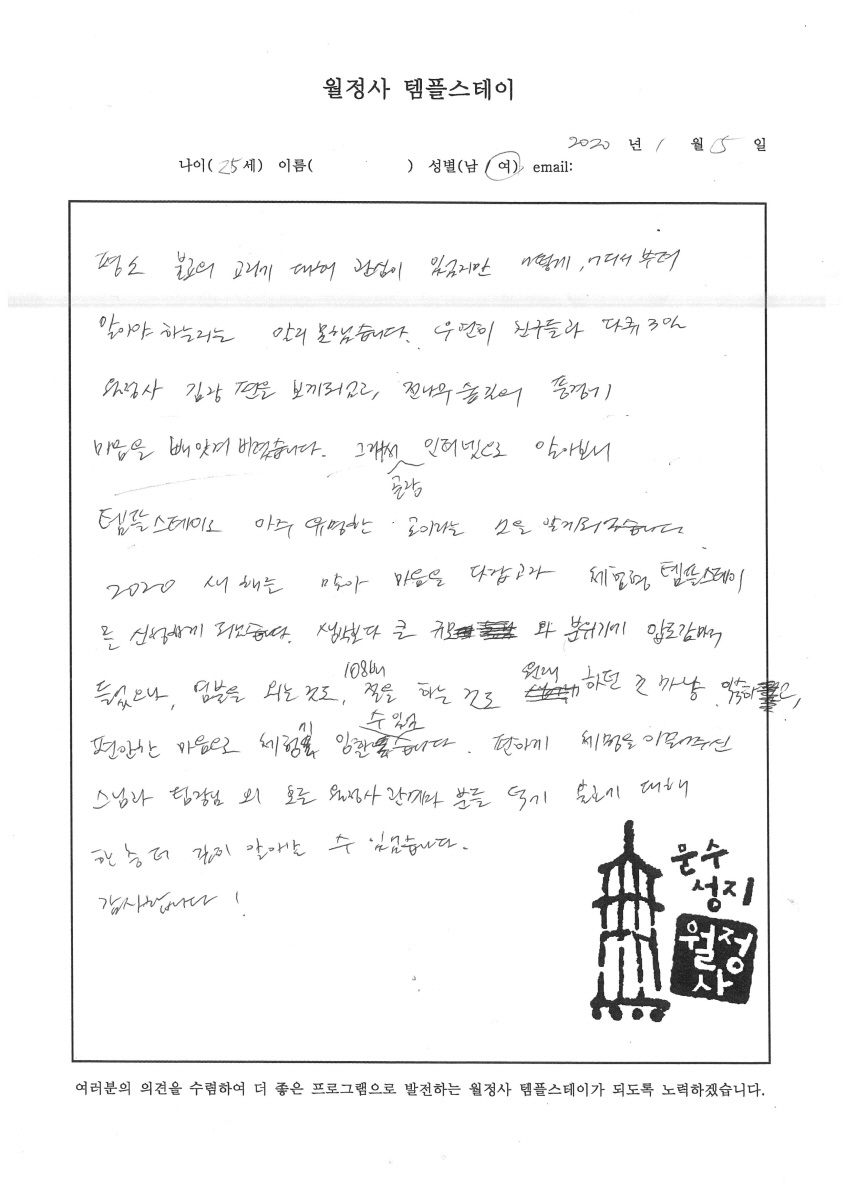 월정사 템플스테이
2020 년 1 월 15 일
나이( 25 세) 이름( ) 성별(남 / 여) email:
평소 불교의 교리에 대해 관심이 있었지만 어떻게, 어디서부터
알아야 하는지는 알지 못했습니다. 우연히 친구들과 다큐 3일
월정사 편을 보게되었고, 전나무숲길의 풍경에
마음을 빼앗겨 버렸습니다. 그래서 곧장 인터넷으로 알아보니
템플스테이로 아주 유명한 곳이라는 것을 알게되
2020 새해를 맞아 마음을 다잡고자 체험형 템플스테이
를 신청하게 되었습니다. 생각보다 큰 규모와 분위기에 압도감마저
들었으나, 염불을 외는 것도, 108배 절을 하는 것도 원래 하던 것 마냥 익숙하고,
편안한 마음으로 체험에 임할 수 있었습니다. 편하게 체험을 이끌어주신
스님과 팀장님 외 모든 월정사 관계자 분들 덕에 불교에 대해
한층 더 깊이 알아갈 수 있었습니다.
감사합니다!
문수
성지
월정
사
여러분의 의견을 수렴하여 더 좋은 프로그램으로 발전하는 월정사 템플스테이가 되도록 노력하겠습니다.